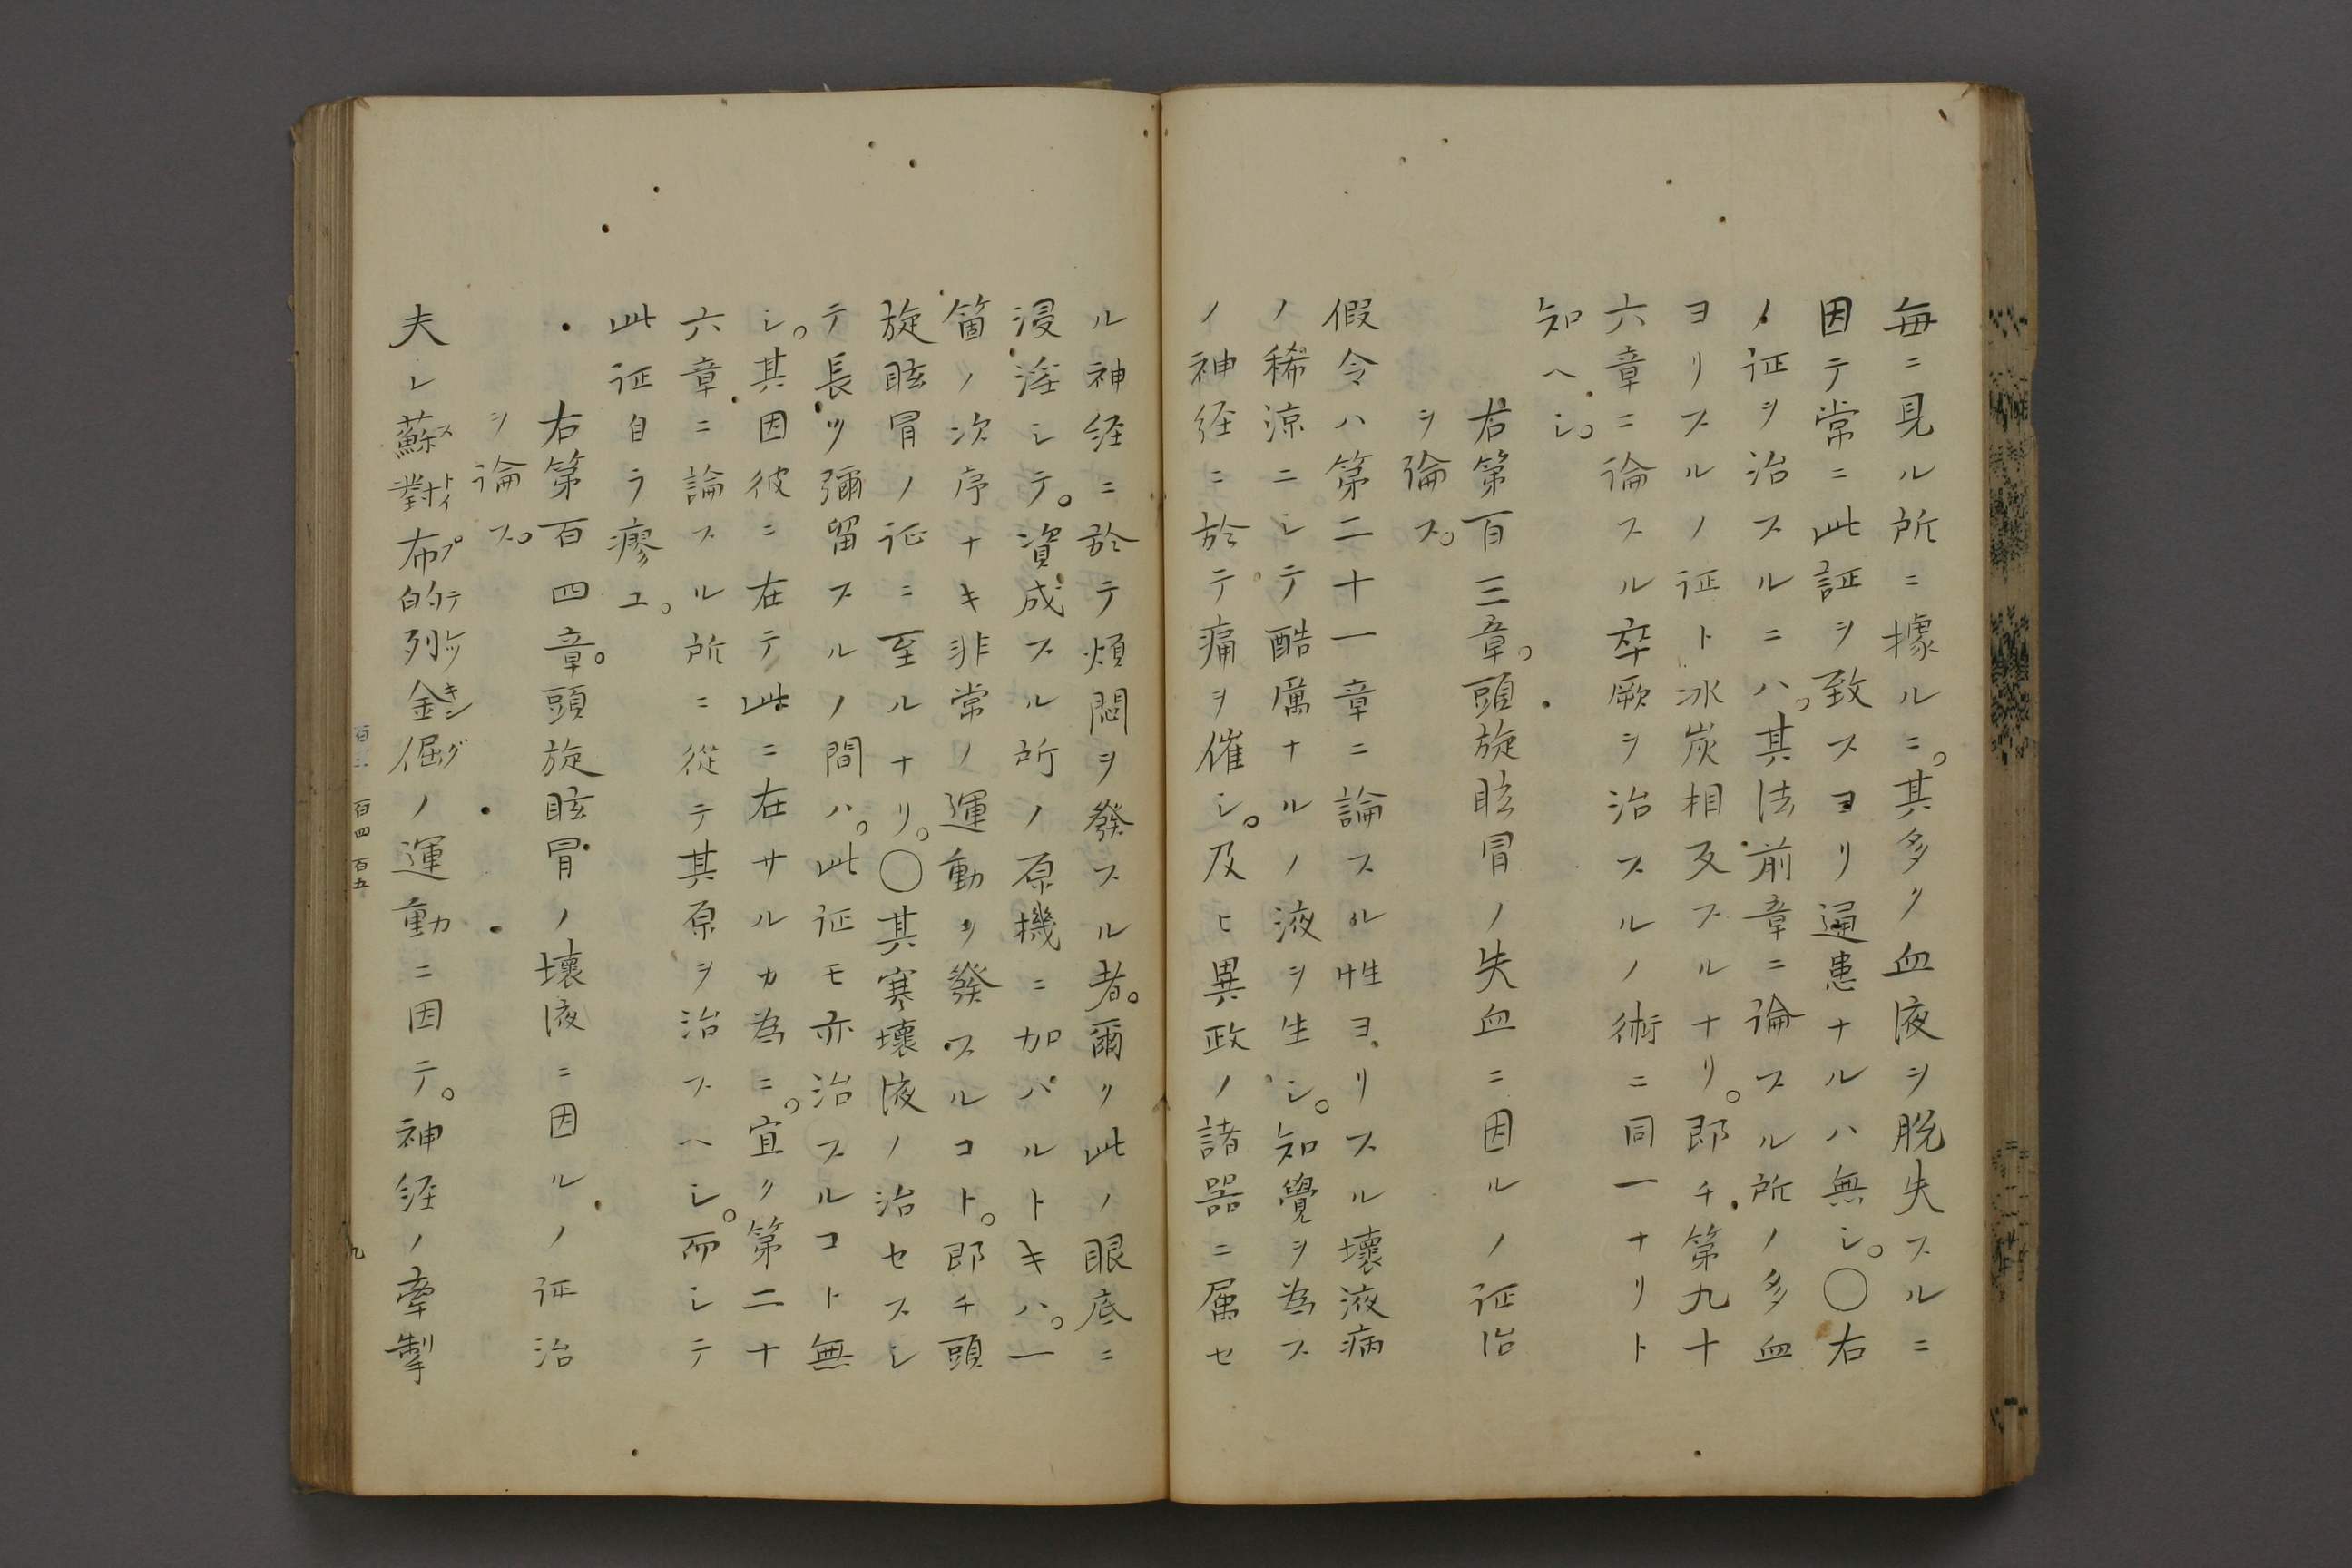 毎ニ見ル所ニ據ルニ。其多ク血液ヲ脱失スルニ
因テ常ニ此証ヲ致スヨリ逼患ナルハ無シ。〇右
ノ证ヲ治スルニハ。其法前章ニ論スル所ノ多血
ヨリスルノ证ト冰炭相反スルナリ。即チ第九十
六章ニ論スル卒厥ヲ治スルノ術ニ同一ナリト
知ヘシ。
右第百三章。頭旋眩冒ノ失血ニ因ルノ证治
ヲ論ス。
假令ハ第二十一章ニ論スル性ヨリスル壞液病
ノ稀涼ニシテ酷厲ナルノ液ヲ生シ。知覺ヲ為ス
ノ神经ニ於テ痛ヲ催シ。及ヒ異政ノ諸器ニ属セ
ル神经ニ於テ煩悶ヲ發スル者。爾ク此ノ眼底ニ
浸淫シテ。資成スル所ノ原機ニ加ハルトキハ。一
箇ノ次序ナキ非常ノ運動ヲ發スルコト。即チ頭
旋眩冒ノ证ニ至ルナリ。〇其寒壞液ノ治セスシ
テ長ツ彌留スルノ間ハ。此证モ亦治スルコト無
シ。其因彼ニ在テ此ニ在サルカ為ニ。宜ク第二十
六章ニ論スル所ニ從テ其原ヲ治スヘシ。而シテ
此证自ラ瘳ユ。
右第百四章。頭旋眩冒ノ壞液ニ因ルノ证治
ヲ論ス。
夫レ蘇對布的列金倔ノ運動ニ因テ。神经ノ牽掣
ストイプテレッキング
百三 百四 百五
九